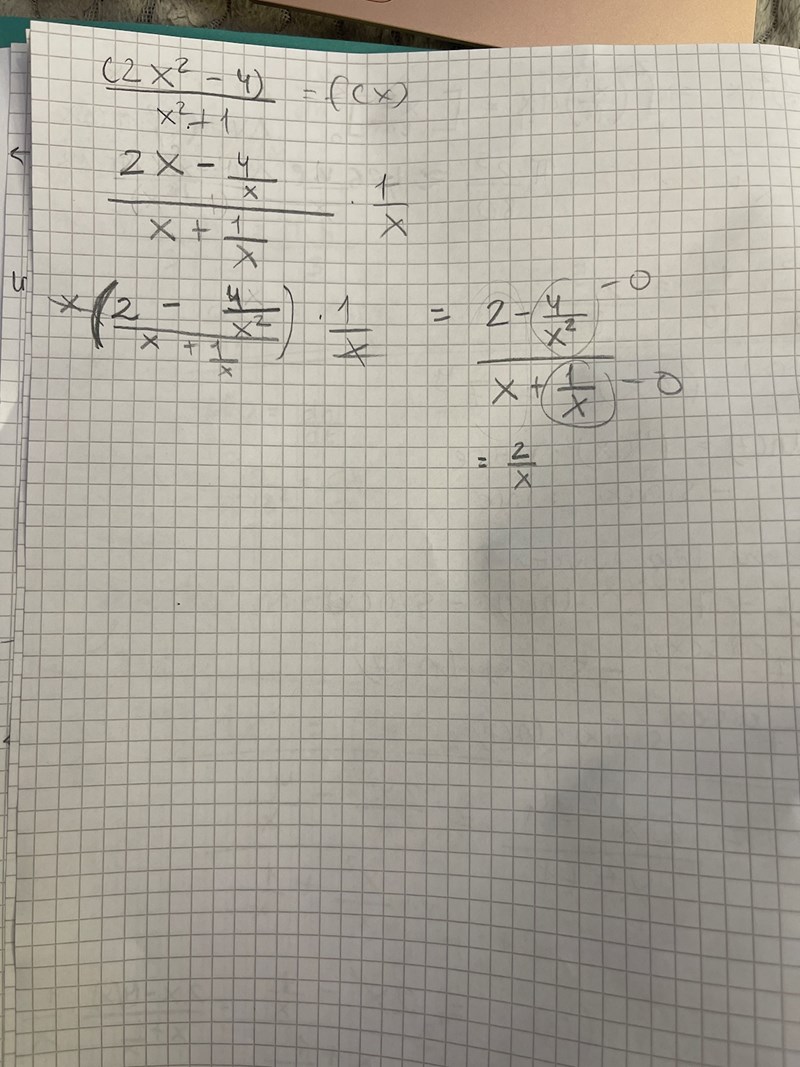 (2x² - 4) / x² + 1 = f(x)
2x - 4/x / x + 1/x · 1/x
x (2 - 4/x² / x + 1/x) · 1/x = 2 - 4/x² - 0 / x + 1/x - 0
= 2/x